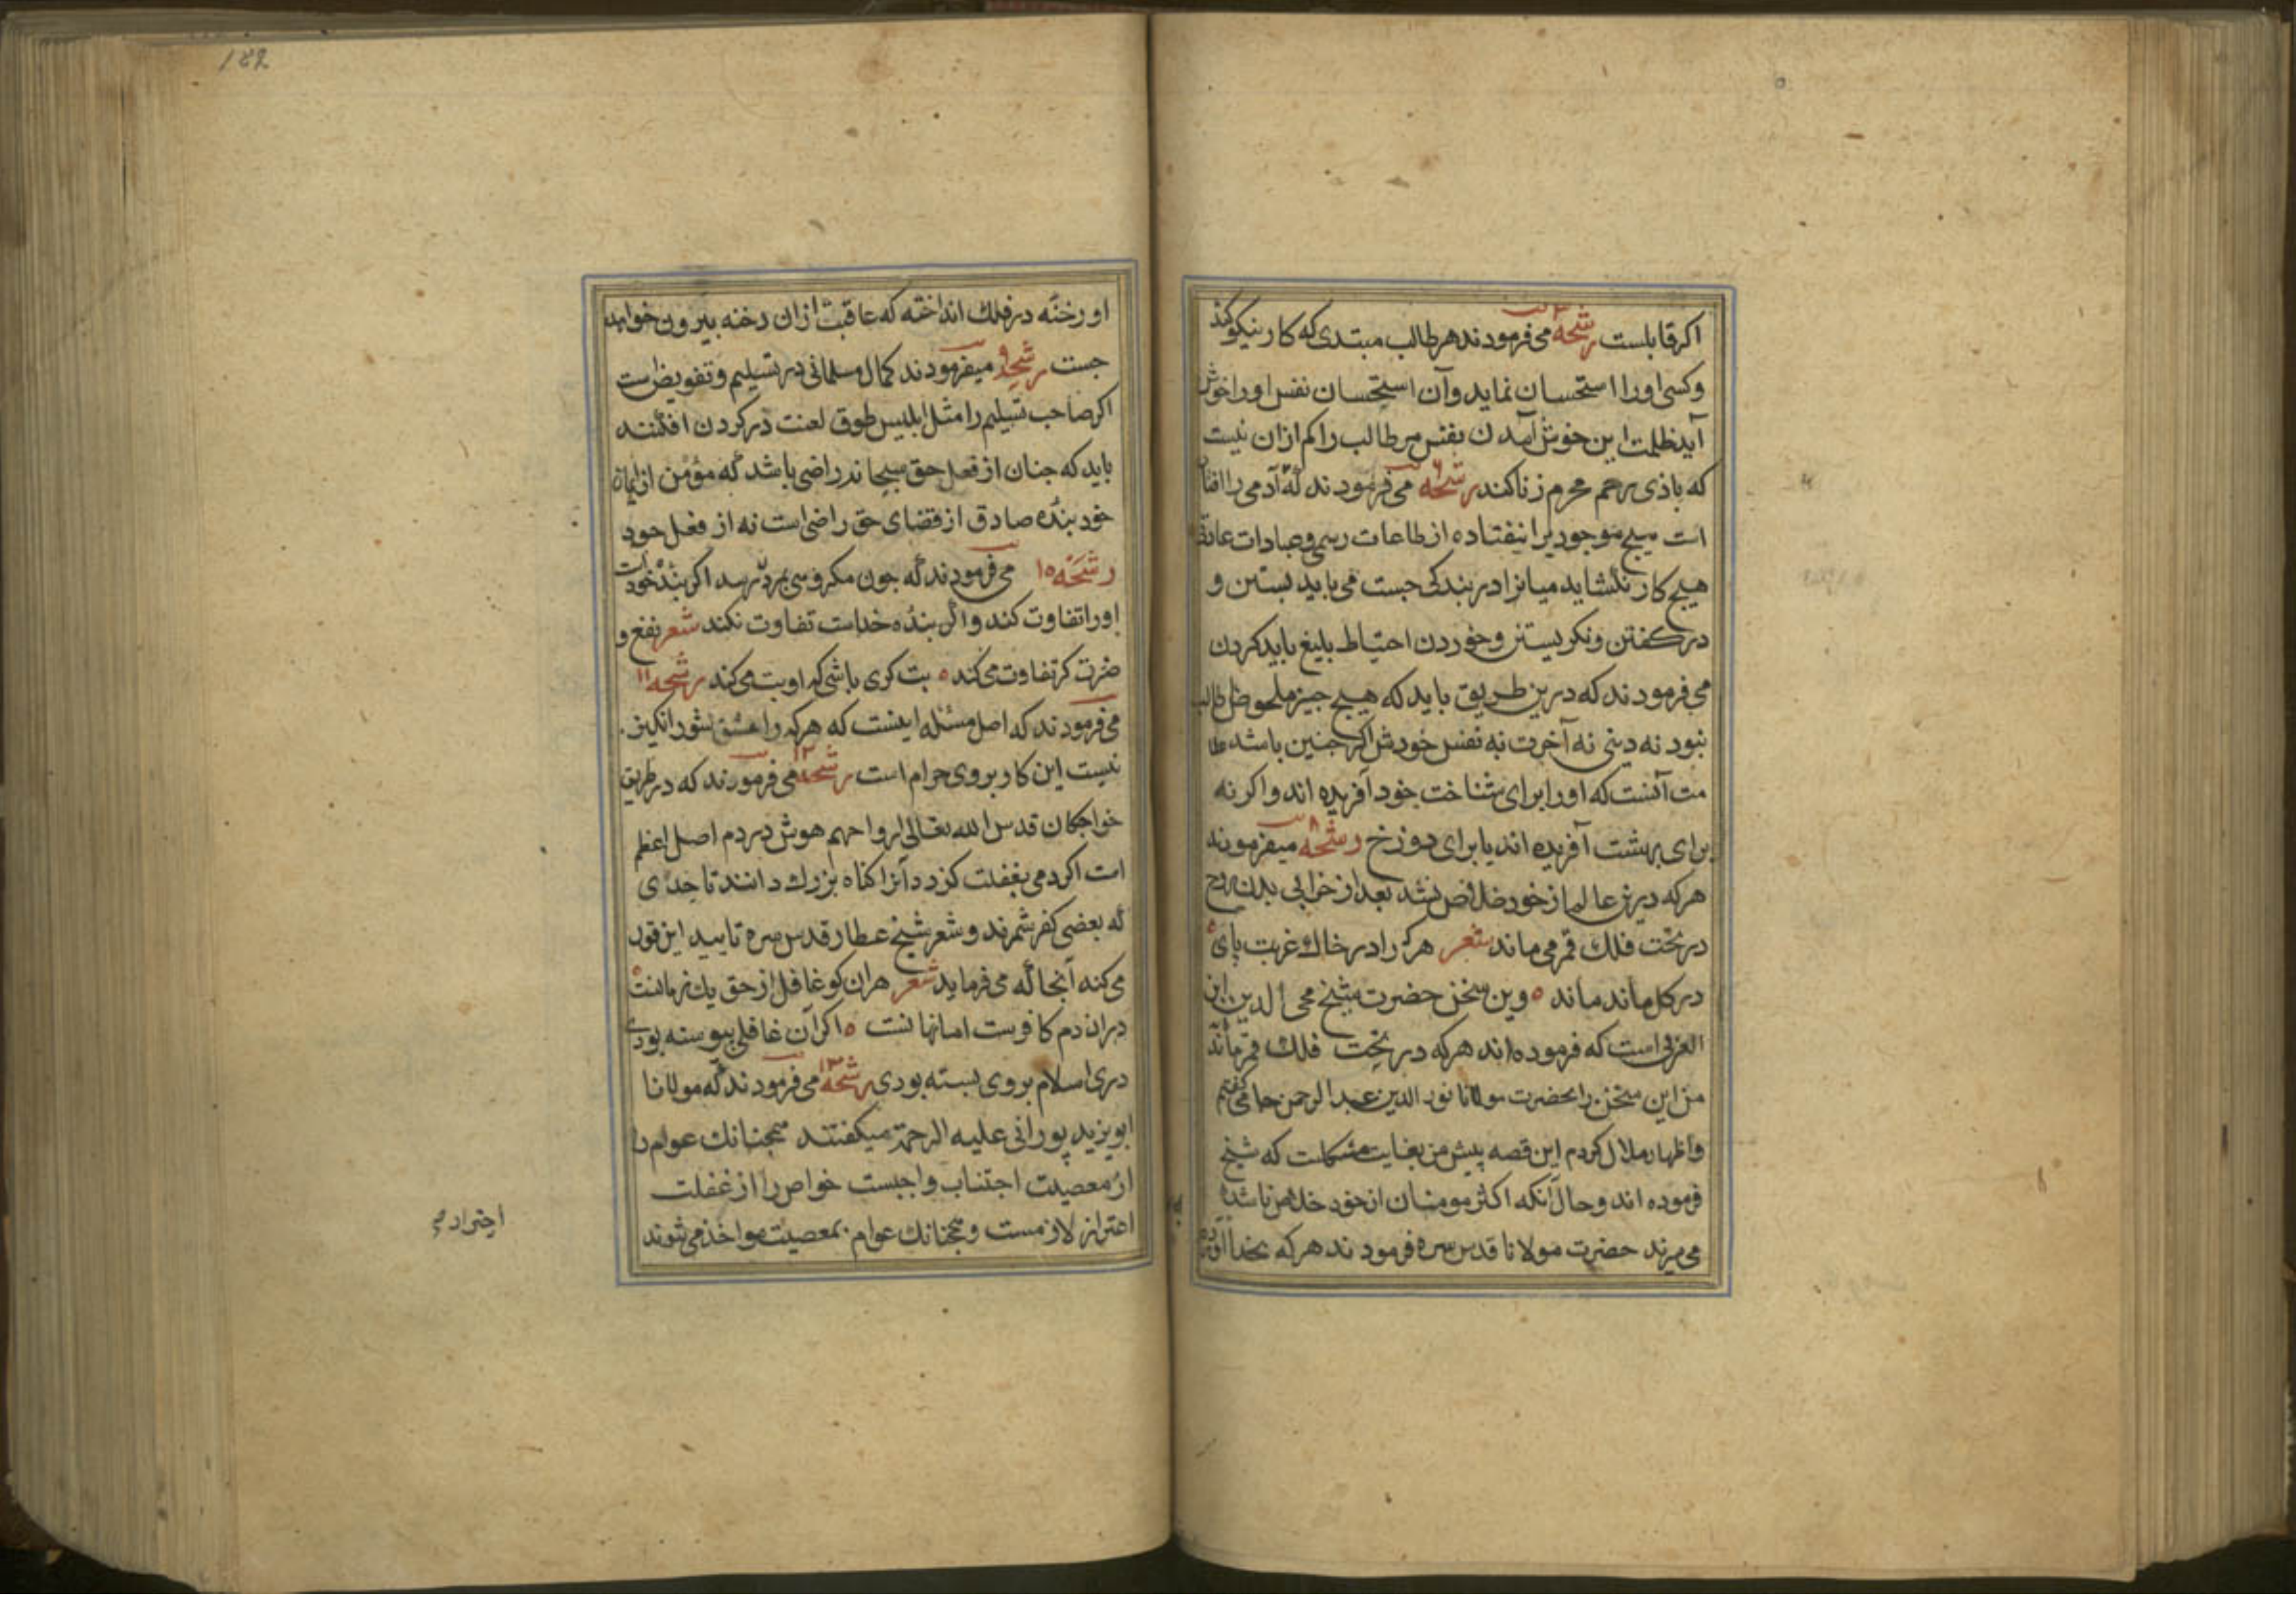 اکر قابلست رشحه می فرمودند هر طالب مبتدی که کار نیکو کند
وکسی اورا استحسان نماید وآن استحسان نفس اورا خوش
آید ظلمت این خوش آمدن نفس مر طالب را کم ازان نیست
که باذی رحم محرم زنا کند رشحه می فرمودند که آدمی را افتا
است هیچ موجودیرا نیفتاده از طاعات رسمی وعبادات
هیچ کار نکشاید میانرا در بندکی جست می باید بستن و
در کفتن ونکریستن وخوردن احتیاط بلیغ باید کردن
می فرمودند که درین طریق باید که هیچ جیز ملحوظ طالب
نبود نه دینی نه آخرت نه نفس خودش اکر جنین باشد علا
مت آنست که اورا برای شناخت خود آفریده اند واکر نه
برای بهشت آفریده اند یا برای دوزخ رشحه ۸ میفرمودند
هرکه درین عالم از خود خلاص نشد بعد از خرابی بدن روح
در تخت فلک قمر می ماند شعر هرکرا در خاک غربت پای
در کل ماند ماند ٥ وین سخن حضرت شیخ محی الدین ابن
العربی است که فرموده اند هرکه در تخت فلک قمر ماند
من این سخن را بحضرت مولانا نور الدین عبد الرحمن جامی کفتم
واظهار ملال کردم این قصه پیش من بغایت مشکلست که شیخ
فرموده اند وحال آنکه اکثر مومنان از خود خلاص ناشده
می میرند حضرت مولانا قدس سره فرمودند هرکه بخدا
122
او رخنه در فلک انداخته که عاقبت ازان رخنه بیرون خواهد
جست رشحه ۹ میفرمودند کمال مسلمانی در تسلیم وتفویض است
اکر صاحب تسلیم را مثل ابلیس طوق لعنت در کردن افکنند
باید که جنان از فعل حق سبحانه راضی باشد که مؤمن از ایمان
خود بنده صادق از قضای حق راضی است نه از فعل خود
رشحه ۱۵ می فرمودند که جون مکروهی بمرد رسد اکر بنده خودست
اورا تفاوت کند واکر بنده خداست تفاوت نکند شعر نفع و
ضرت کر تفاوت می کند ٥ بت کری باشی که او بت می کند رشحه ۱۱
می فرمودند که اصل مسئله اینست که هرکه را عشق شور انکیز
نیست این کار بروی حرام است رشحه ۱۲ می فرمودند که در طریق
خواجکان قدس الله تعالی ارواحهم هوش در دم اصل اعظم
است اکر دمی بغفلت کزرد آنرا کناه بزرك دانند تا حدی
که بعضی کفر شمرند وشعر شیخ عطار قدس سره تایید این قول
می کند آنجا که می فرماید شعر هران کو غافل از حق یك زمانست
دران دم کافرست اما نهانست ٥ اکر آن غافلی پیوسته بودی
دری اسلام بروی بسته بودی رشحه ۱۳ می فرمودند که مولانا
ابو یزید پورانی علیه الرحمة میکفتند همجنانك عوام را
از معصیت اجتناب واجبست خواص را از غفلت
اعتراز لازمست وهمجنانك عوام بمعصیت مواخذ می شوند